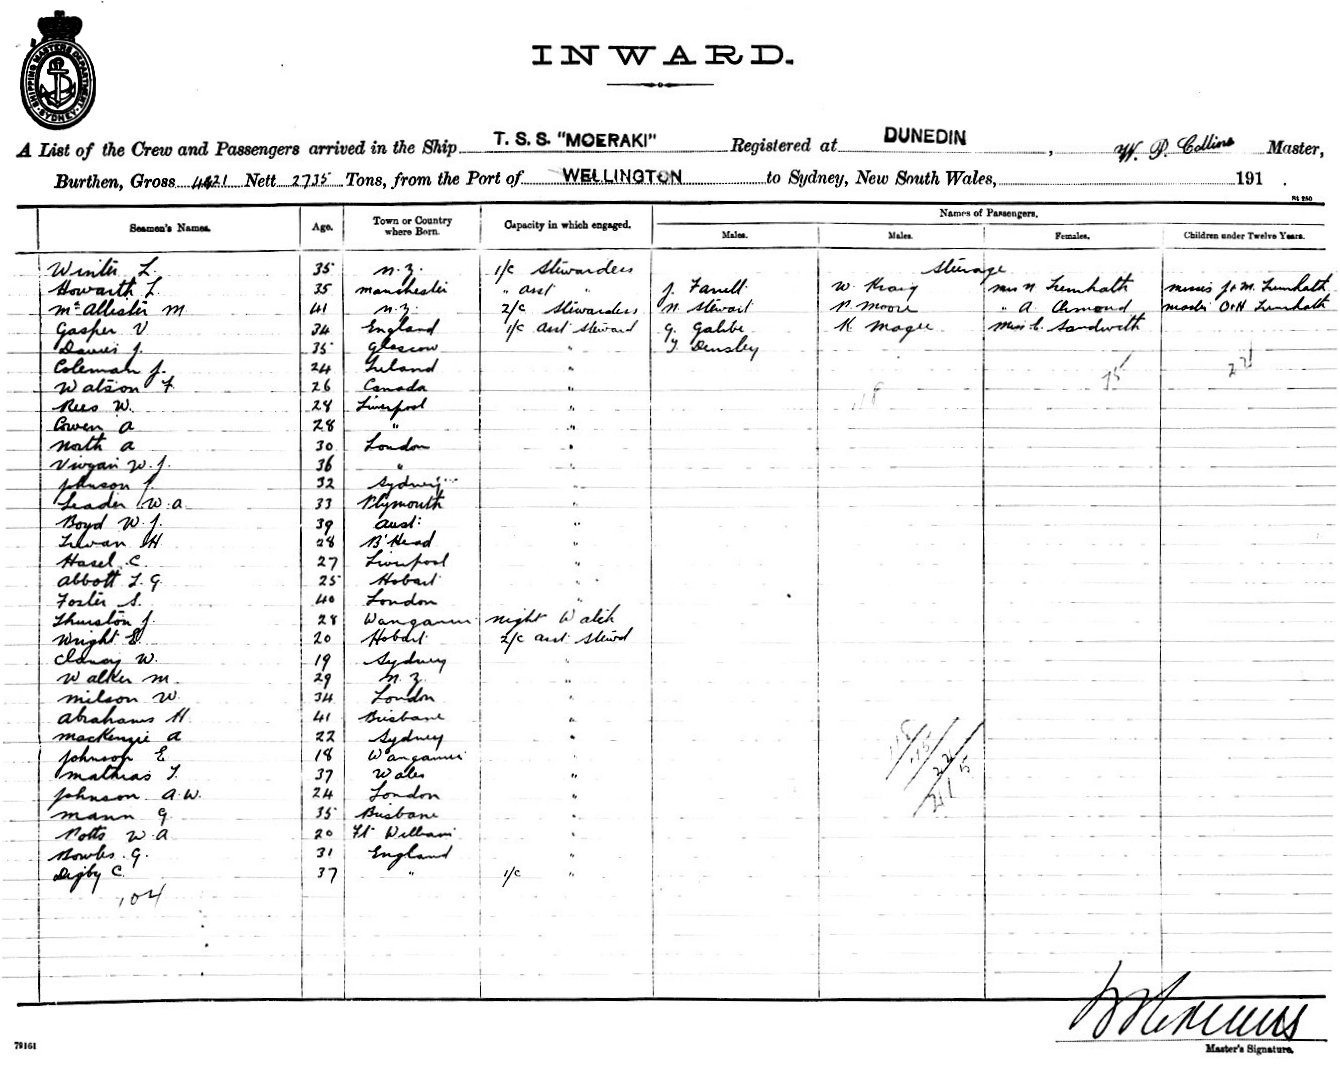 SHIPPING MASTERS DEPARTMENT SYDNEY
INWARD.
A List of the Crew and Passengers arrived in the Ship T. S. S. "MOERAKI" Registered at DUNEDIN, W. P. Collins Master,
Burthen, Gross 4421 Nett 2735 Tons, from the Port of WELLINGTON to Sydney, New South Wales, 191 .
Seamen's Names. Age. Town or Country where Born. Capacity in which engaged. Names of Passengers.
Males. Males. Females. Children under Twelve Years.
Steerage
Winter L. 35 N.Z. 1/c Stewardess
Howarth L. 35 Manchester " asst " J. Farrell W. Kraig Mrs N
McAllister M 41 N.Z. 2/c Stewardess N. Stewart P. Moore " A. Ormond Master
Gasper V 34 England 1/c asst Steward G. K. Magee Miss C. Sandwith
Davies J. 35 Glascow " Densley
Coleman J. 24 Ireland "
Watson F 26 Canada "
Rees W. 28 Liverpool "
Cowen A 28 " "
North A 30 London "
Vivyan W. J. 36 " "
Johnson J. 32 Sydney "
Leader W. A 33 Plymouth "
Boyd W. J. 39 Aust: "
H 28 B'Head "
Hasel C. 27 Liverpool "
Abbott L. G. 25 Hobart "
Foster S. 40 London "
Thurston J. 28 Wanganui Night Watch
Wright E 20 Hobart 2/c asst Stewd
Clancy W. 19 Sydney "
Walker M. 29 N.Z. "
Milson W. 34 London "
Abrahams H 41 Brisbane "
MacKenzie A 22 Sydney "
Johnson E 18 Wanganui "
Mathias T. 37 Wales "
Johnson A. W. 24 London "
Mann G 35 Brisbane "
Potts W. A 20 Ft William "
Bowles G. 31 England "
Digby C. 37 " 1/c "
104
118
75
22
118
115
22
Master's Signature.
79161